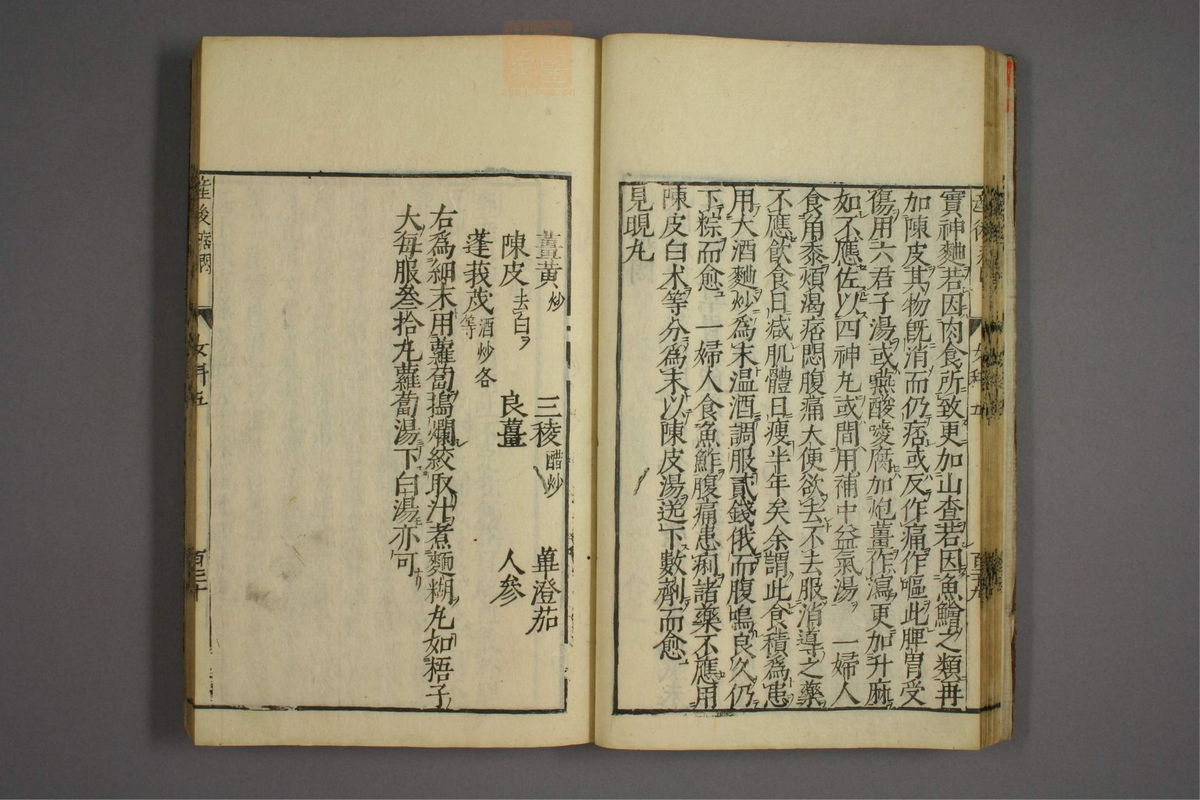 實神麯若因肉食所致更加山查若因魚鱠之類再
加陳皮其物既消而仍痞或反作痛作嘔此脾胃受
傷用六君子湯或嚥酸噯腐加炮薑作瀉更加升麻
如不應佐以四神丸或間用補中益氣湯 一婦人
食角黍煩渴痞悶腹痛大便欲去不去服消導之藥
不應飲食日减肌體日瘦半年矣余謂此食積爲患
用大酒麯炒爲末温酒調服貳錢俄而腹鳴良久仍
下粽而愈 一婦人食魚鮓腹痛患痢諸藥不應用
陳皮白术等分爲末以陳皮湯送下數劑而愈
見晛丸
薑黄炒 三稜醋炒 蓽澄茄
陳皮去白 良薑 人參
蓬莪茂酒炒各等
右爲細末用蘿蔔搗爛絞取汁煮麵糊丸如梧子
大每服叁拾丸蘿蔔湯下白湯亦可
女科五
百三十